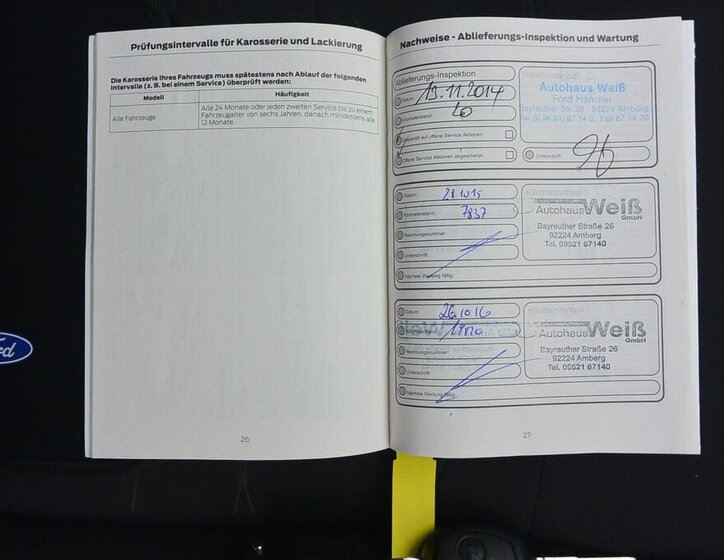 Prüfungsintervalle für Karosserie und Lackierung
Die Karosserie Ihres Fahrzeugs muss spätestens nach Ablauf der folgenden
Intervalle (z. B. bei einem Service) überprüft werden:
Modell Häufigkeit
Alle Fahrzeuge
Alle 24 Monate oder jeden zweiten Service bis zu einem
Fahrzeugalter von sechs Jahren, danach mindestens alle
12 Monate.
26
Nachweise - Ablieferungs-Inspektion und Wartung
Ablieferungs-Inspektion
Datum: 19.11.2014
Kilometerstand:
Überprüft auf offene Service Aktionen:
Offene Service Aktionen abgearbeitet:
Händlerstempel
Autohaus Weiß
Ford Händler
Bayreuther Str. 26 92224 Amberg
Tel. (0 96 21) 67 14 0 Fax 67 14 20
Unterschrift:
Datum: 28.10.15
Kilometerstand: 7837
Rechnungsnummer:
Unterschrift:
Nächste Wartung fällig:
Händlerstempel
Autohaus Weiß
GmbH
Bayreuther Straße 26
92224 Amberg
Tel. 09621 67140
Datum: 26.10.16
Rechnungsnummer:
Unterschrift:
Nächste Wartung fällig:
Händlerstempel
Autohaus Weiß
GmbH
Bayreuther Straße 26
92224 Amberg
Tel. 09621 67140
27